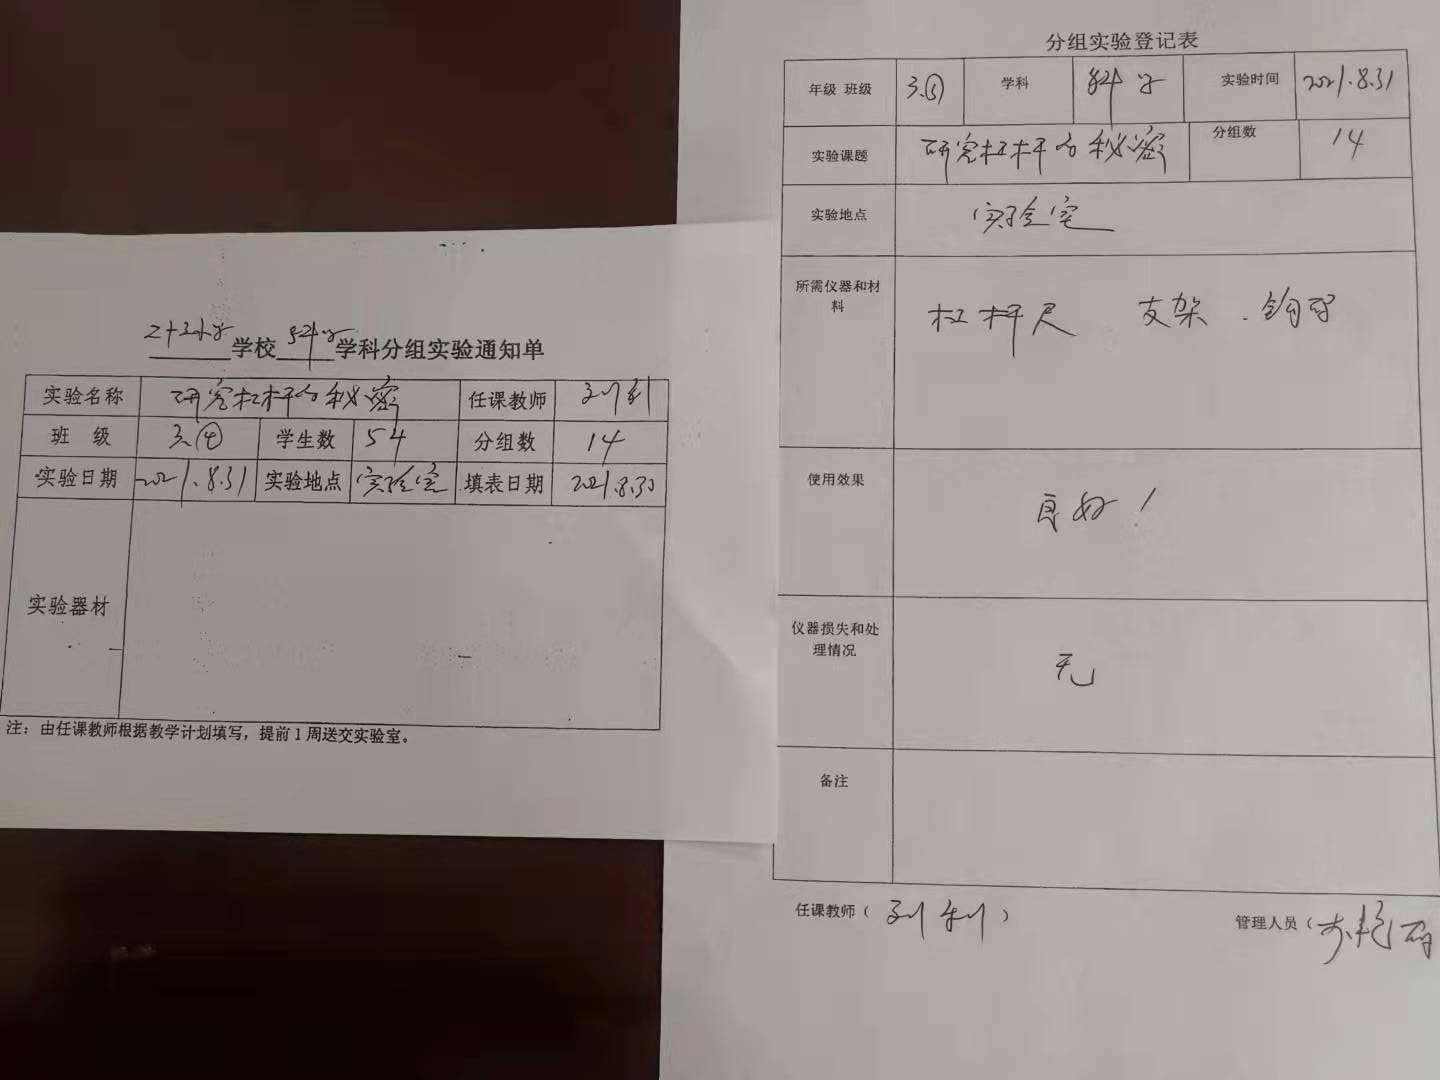 二十三小学学校科学学科分组实验通知单
实验名称 研究杠杆的秘密 任课教师 刘利
班 级 3.④ 学生数 54 分组数 14
实验日期 2021.8.31 实验地点 实验室 填表日期 2021.8.30
实验器材
注：由任课教师根据教学计划填写，提前1周送交实验室。
分组实验登记表
年级 班级 学科 科学 实验时间 2021.8.31
实验课题 研究杠杆的秘密 分组数 14
实验地点 实验室
所需仪器和材
料
杠杆尺 支架 . 钩码
使用效果 良好！
仪器损失和处
理情况
无
备注
任课教师（ 刘利 ）
管理人员（